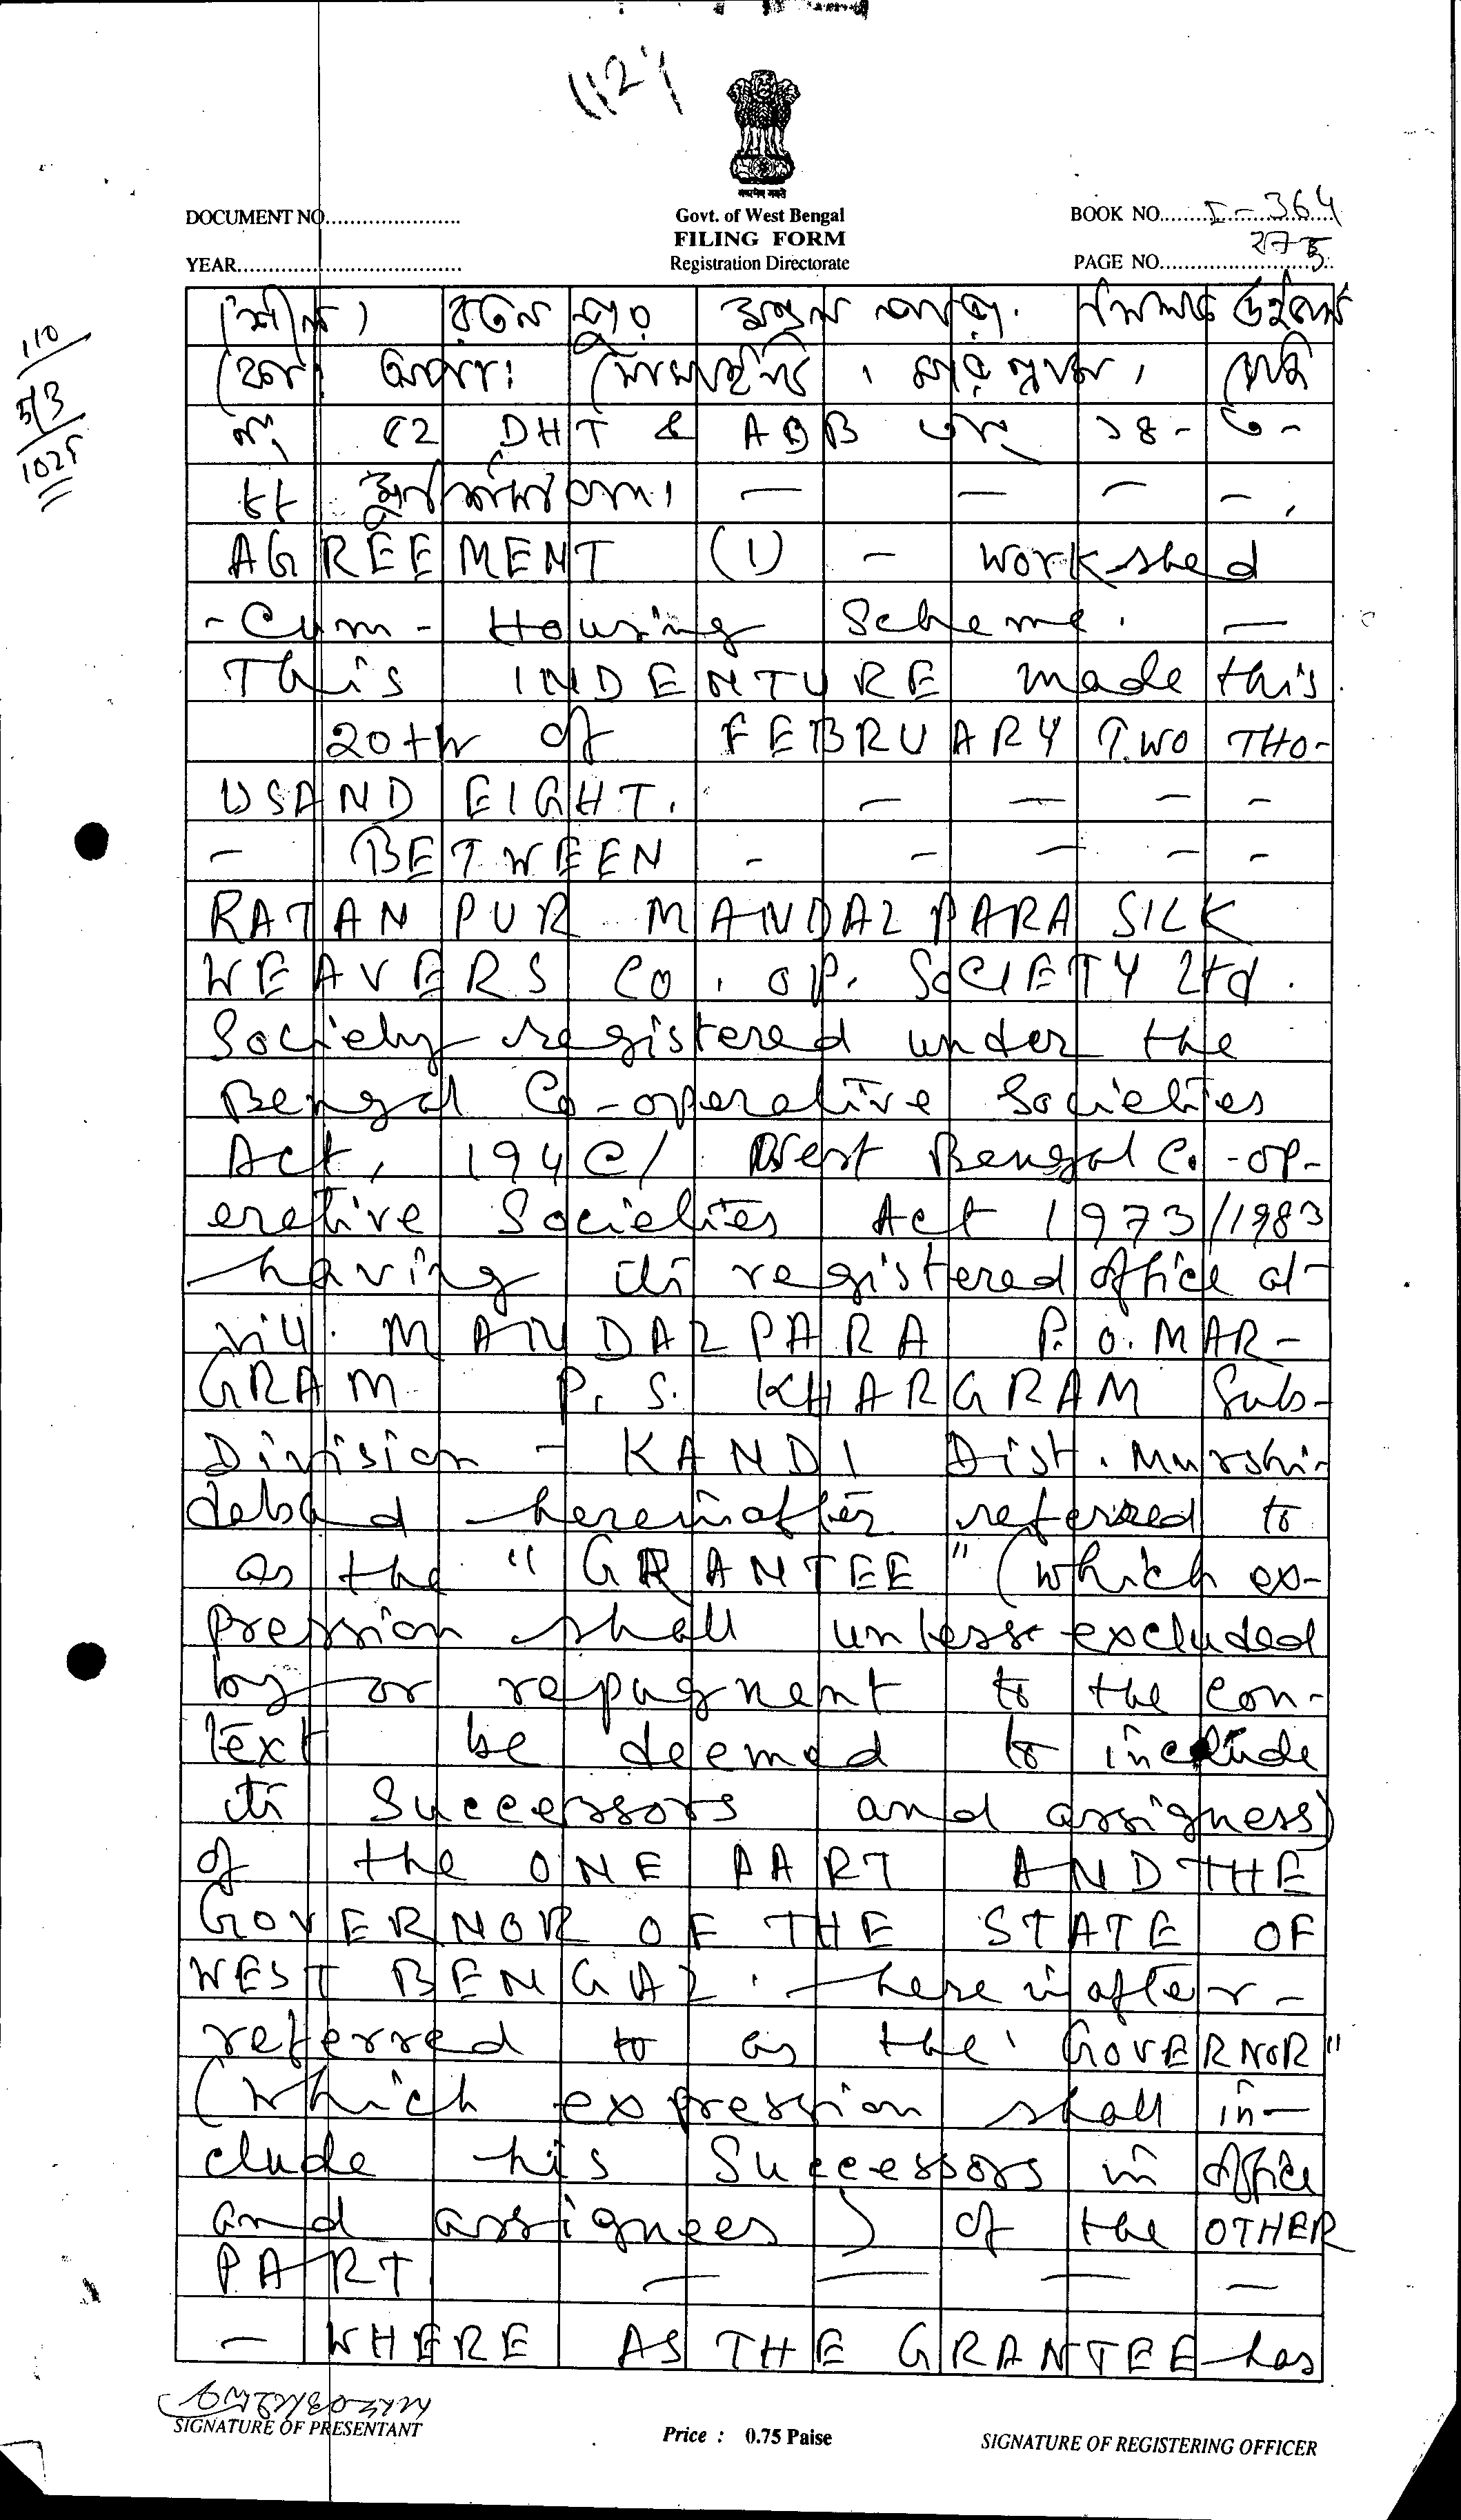 Govt. of West Bengal
FILING FORM
Registration Directorate
DOCUMENT NO.....................
YEAR....................................
BOOK NO. I-364
PAGE NO. 275
110
5/3
1025
রতনপুর
নং ৫২ DHT & AQB তাং ১৪-৩-
৮৮ মুর্শিদাবাদ। — — — -,
AGREEMENT (1) - Workshed
-Cum-Housing Scheme. —
This INDENTURE made this
20th of FEBRUARY TWO THO-
USAND EIGHT. - - - -
- BETWEEN - - - - -
RATANPUR MANDALPARA SILK
WEAVERS CO.OP. SOCIETY Ltd.
Society registered under the
Bengal Co-operative Societies
Act, 1940/ West Bengal Co-op-
erative Societies Act 1973/1983
having its registered office at
vill. MANDALPARA P.O. MAR-
GRAM P.S. KHARGRAM Sub-
Division - KANDI Dist. Murshi-
dabad hereinafter referred to
as the "GRANTEE" (which ex-
pression shall unless excluded
by or repugnent to the con-
text be deemed to include
its Successors and assigness)
of the ONE PART AND THE
GOVERNOR OF THE STATE OF
WEST BENGAL. hereinafter-
referred to as the 'GOVERNOR"
(which expression shall in-
clude his Successors in office
and assignees) of the OTHER
PART — — — —
- WHERE AS THE GRANTEE has
SIGNATURE OF PRESENTANT
Price : 0.75 Paise
SIGNATURE OF REGISTERING OFFICER